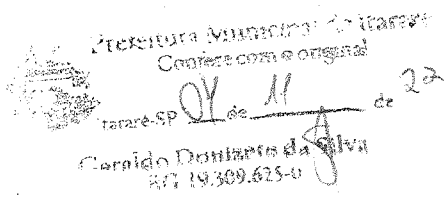 Prefeitura Municipal de Itararé
Confere com o original
Itararé-SP 04 de 11 de 22
Geraldo Donizete da Silva
RG 19.309.625-0